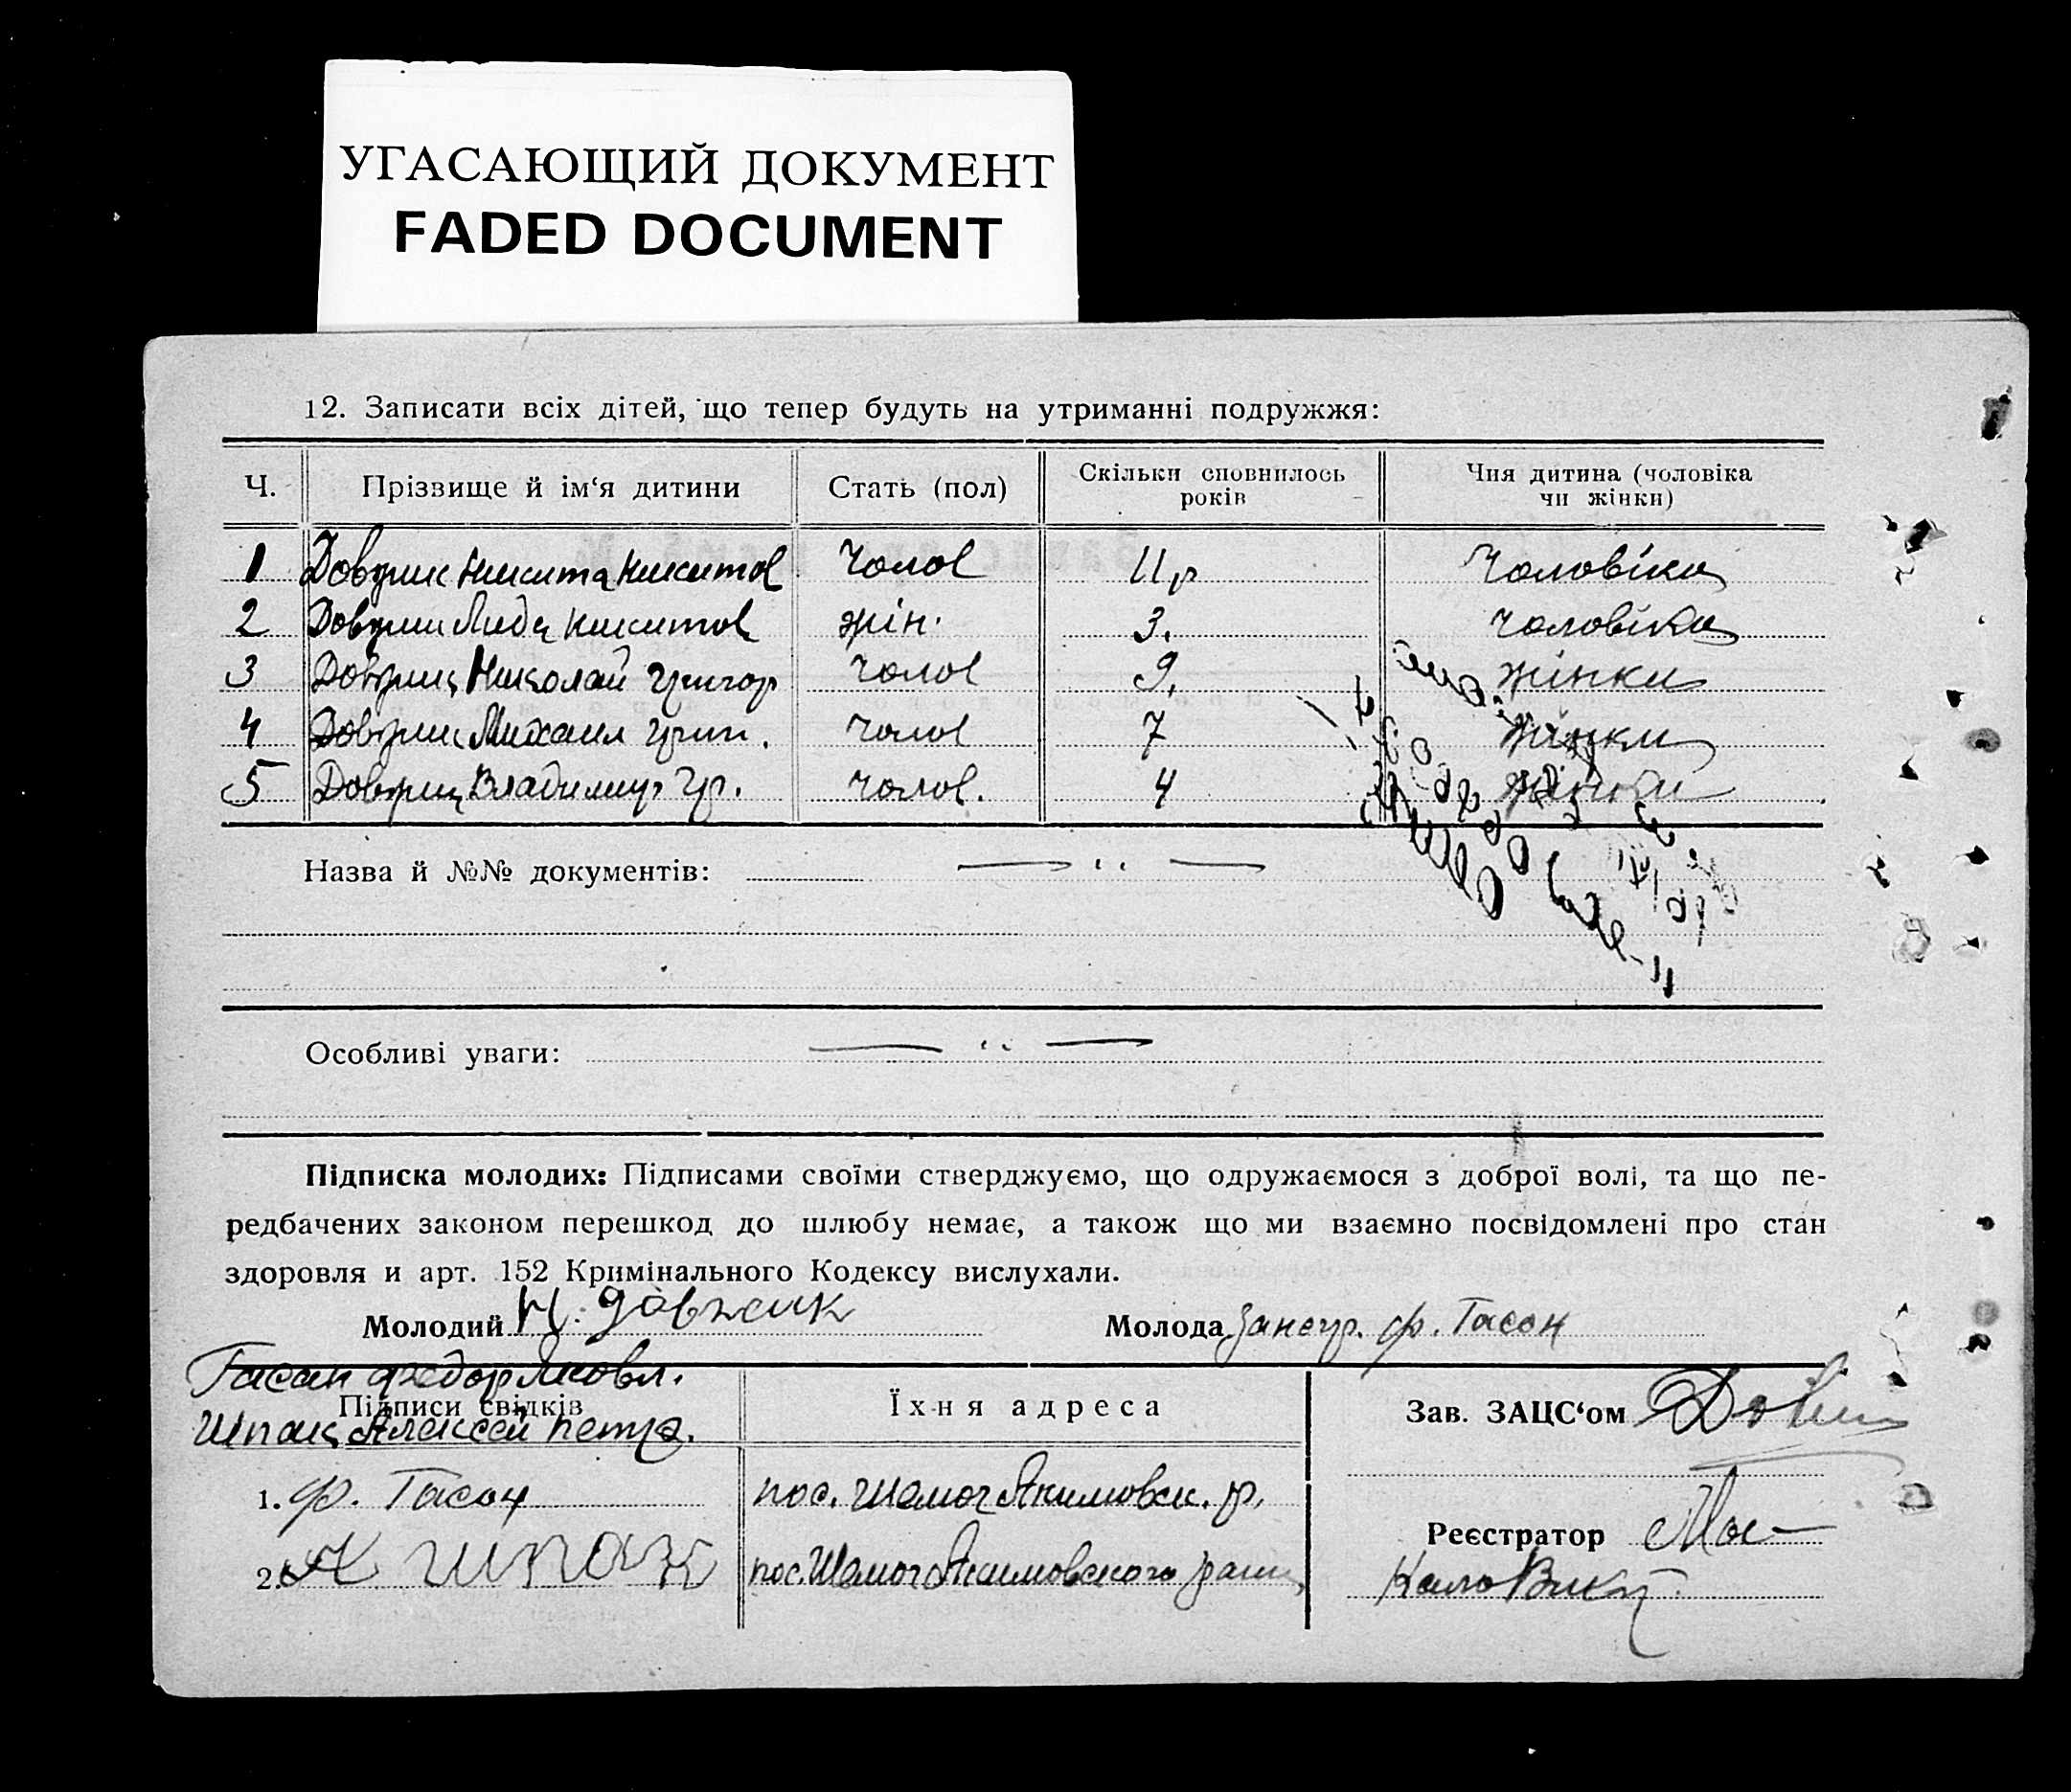 УГАСАЮЩИЙ ДОКУМЕНТ
FADED DOCUMENT
12. Записати всіх дітей, що тепер будуть на утриманні подружжя:
Ч. Прізвище й ім‘я дитини Стать (пол) Скільки сповнилось років Чия дитина (чоловіка чи жінки)
1 Никита Никитов Чолов 11 р Чоловіка
2 Лида Никитов жін. 3. чоловіка
3 Николай Григор чолов 9. жінки
4 Михаил Григ. чолов 7 жінки
5 Владимир Гр. чолов. 4 жінки
Назва й №№ документів:
Особливі уваги:
Підписка молодих: Підписами своїми стверджуємо, що одружаємося з доброї волі, та що пе-
редбачених законом перешкод до шлюбу немає, а також що ми взаємно посвідомлені про стан
здоровля и арт. 152 Кримінального Кодексу вислухали.
Молодий Н. Довжик Молода ф. Гасан
Гасан Федор Яковл.
Підписи свідків Їхня адреса Зав. ЗАЦС‘ом
Шпак Алексей Петр.
1. Ф. Гасан пос. Шемог Якимовск. р.
Реєстратор
2. А шпак пос. Шемог Якимовского